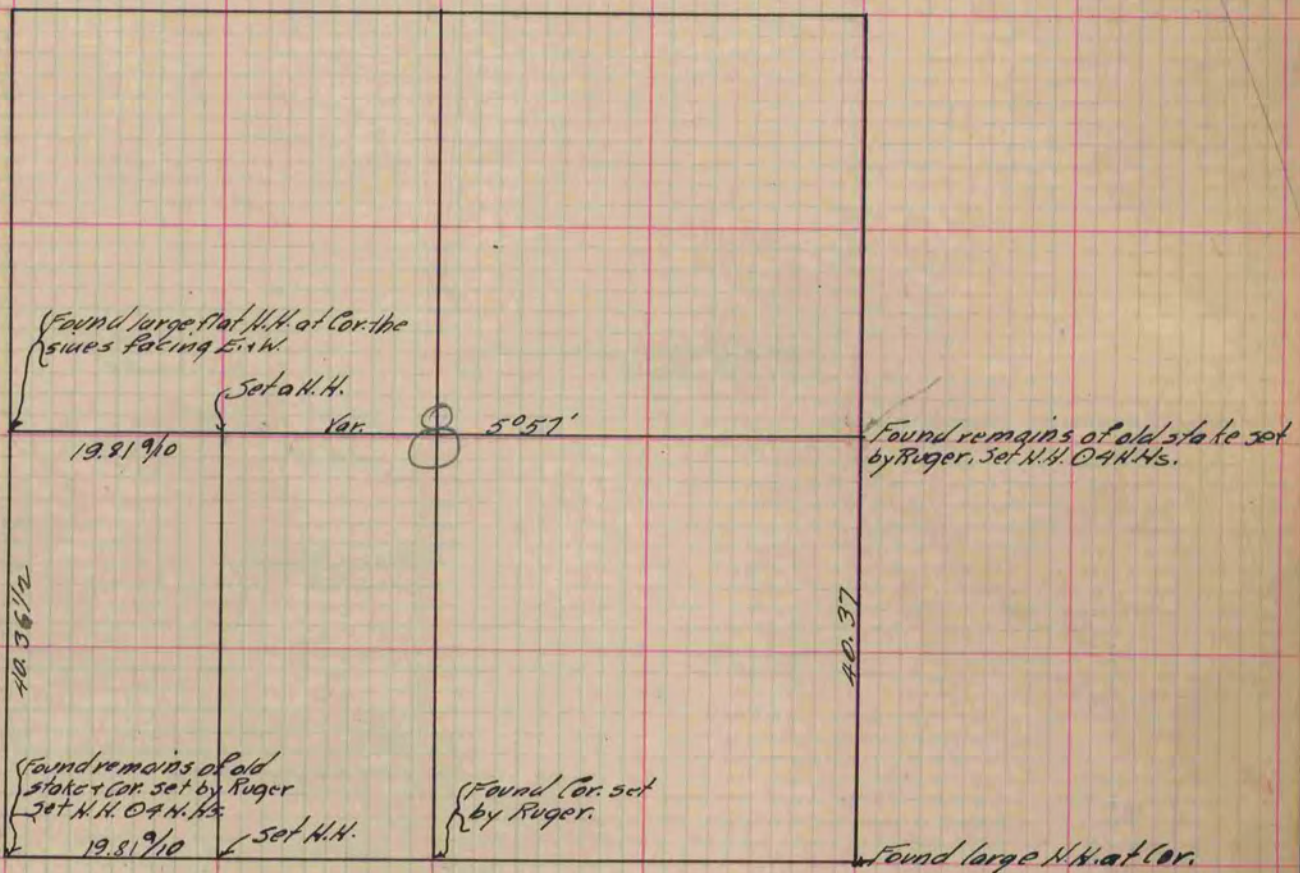 Found large flat N.H. at Cor. the
sides facing E. & W.
Set a N.H.
Var. 8 5°57'
19.81 9/10
Found remains of old stake set
by Ruger. Set N.H. O 4 N.Hs.
40.36 1/2
40.37
Found remains of old
stake & Cor. set by Ruger
Set N.H. O 4 N.Hs.
Found Cor. set
by Ruger.
19.81 9/10
Set N.H.
Found large N.H. at Cor.